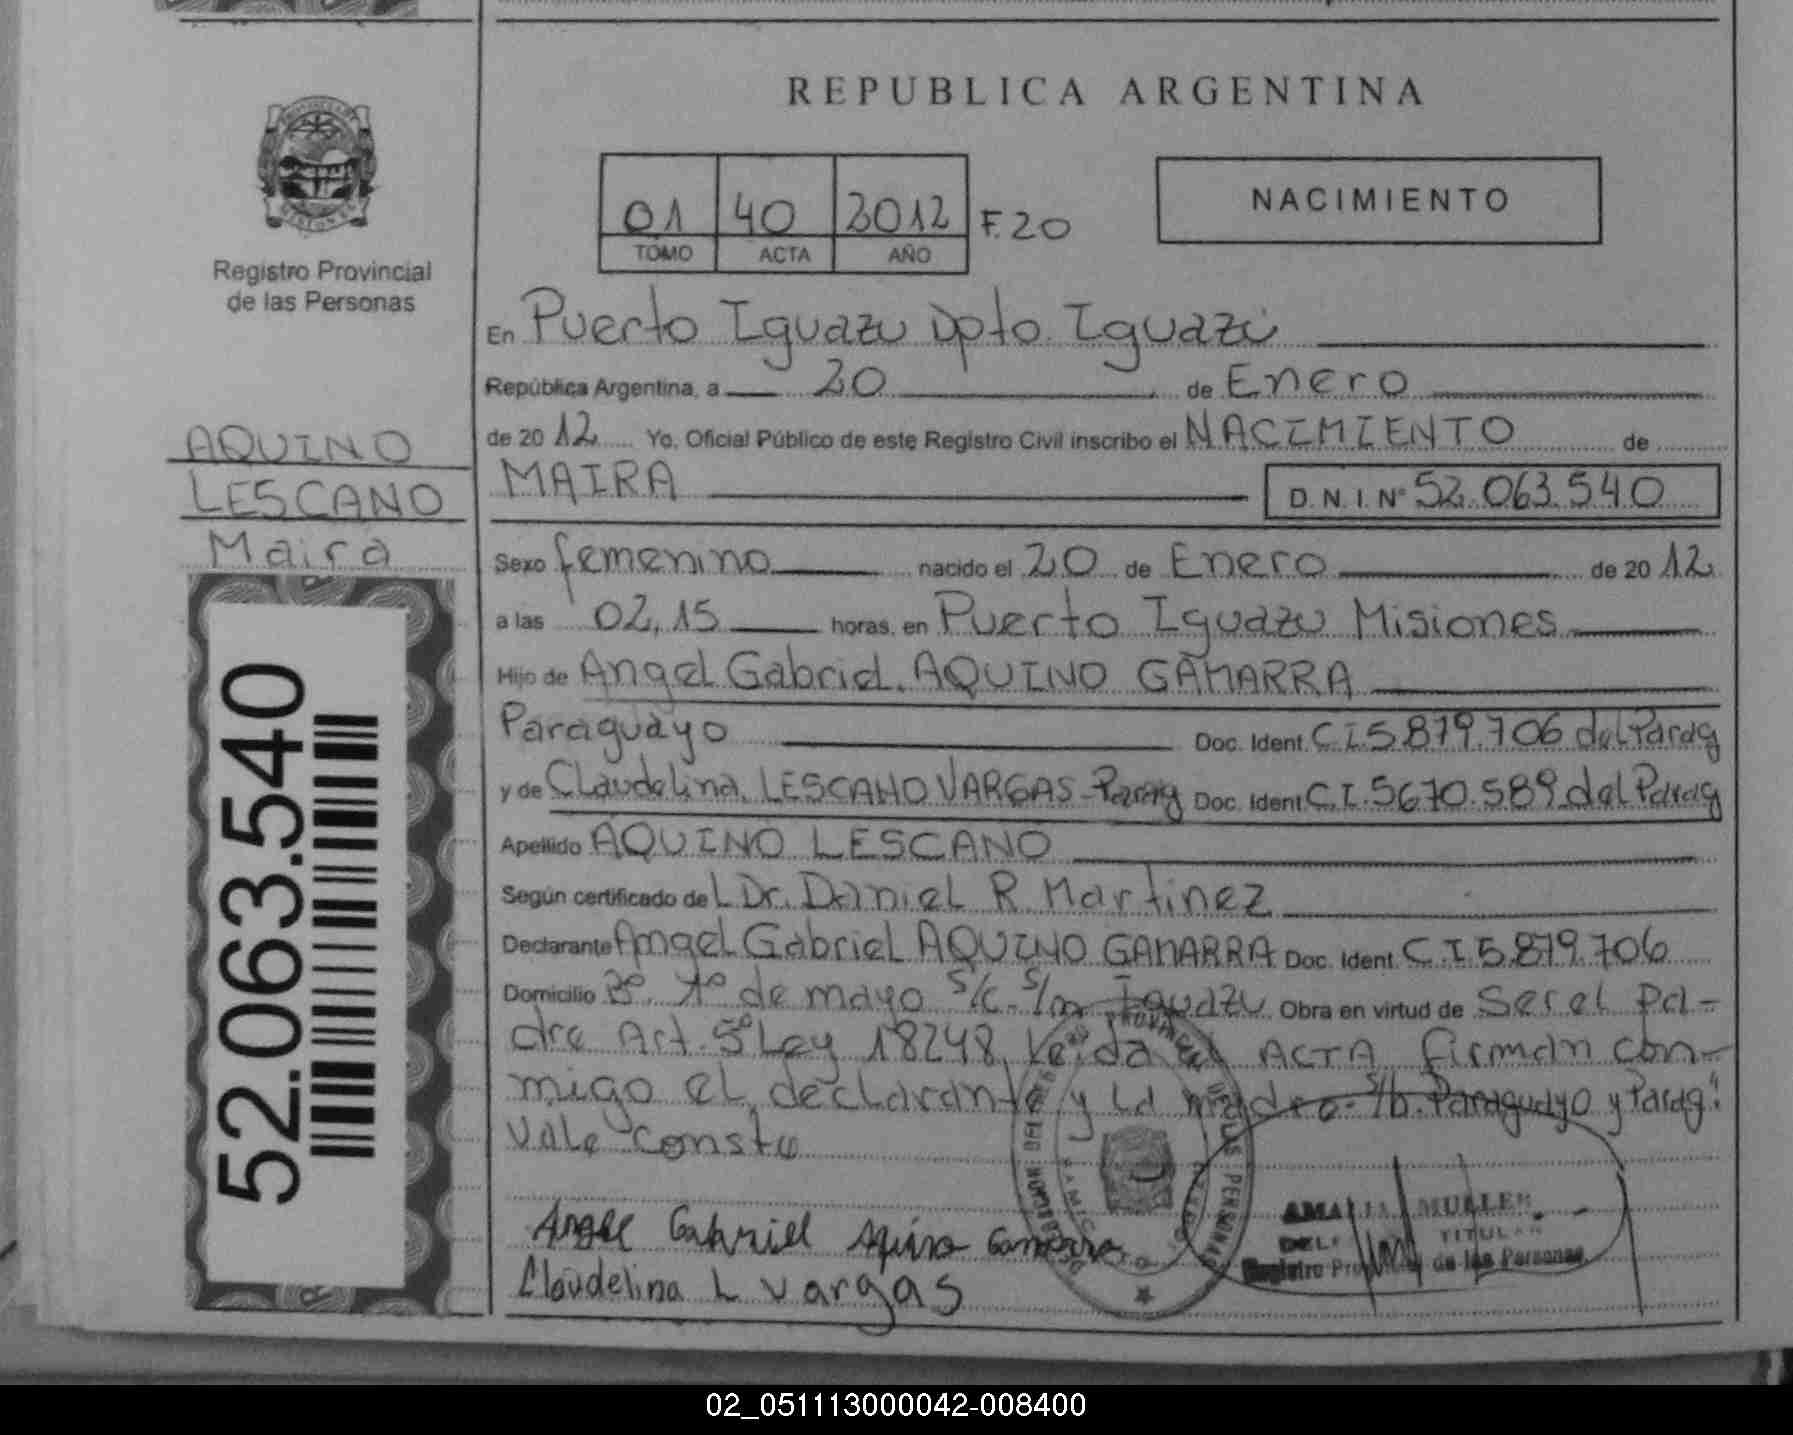 REPUBLICA ARGENTINA
01 40 2012 F. 20
TOMO ACTA AÑO
NACIMIENTO
Registro Provincial
de las Personas
AQUINO
LESCANO
Maira
52.063.540
En Puerto Iguazu Dpto. Iguazú
República Argentina, a 20 de Enero
de 2012 Yo, Oficial Público de este Registro Civil inscribo el NACIMIENTO de
MAIRA D.N.I. Nº 52.063.540
Sexo femenino nacido el 20 de Enero de 2012
a las 02,15 horas, en Puerto Iguazu Misiones
Hijo de Angel Gabriel. AQUINO GAMARRA
Paraguayo Doc. Ident. C I 5.879.706 del Parag
y de Claudelina. LESCANO VARGAS-Parag Doc. Ident. C.I. 5670.589 del Parag
Apellido AQUINO LESCANO
Según certificado del Dr. Daniel R Martinez
Declarante Angel Gabriel AQUINO GAMARRA Doc. Ident. C I 5.879.706
Domicilio Bº. 1º de mayo S/C. S/n Iguazu. Obra en virtud de Ser el Pa-
dre Art. 5º Ley 18248. Leida el ACTA firman con-
migo el declarante y la madre- S/b. Paraguayo y Parag"
Vale Conste
Angel Gabriel Aquino Gamarra
Claudelina L Vargas
MULLER
TITULAR
Registro de las Personas
02_051113000042-008400